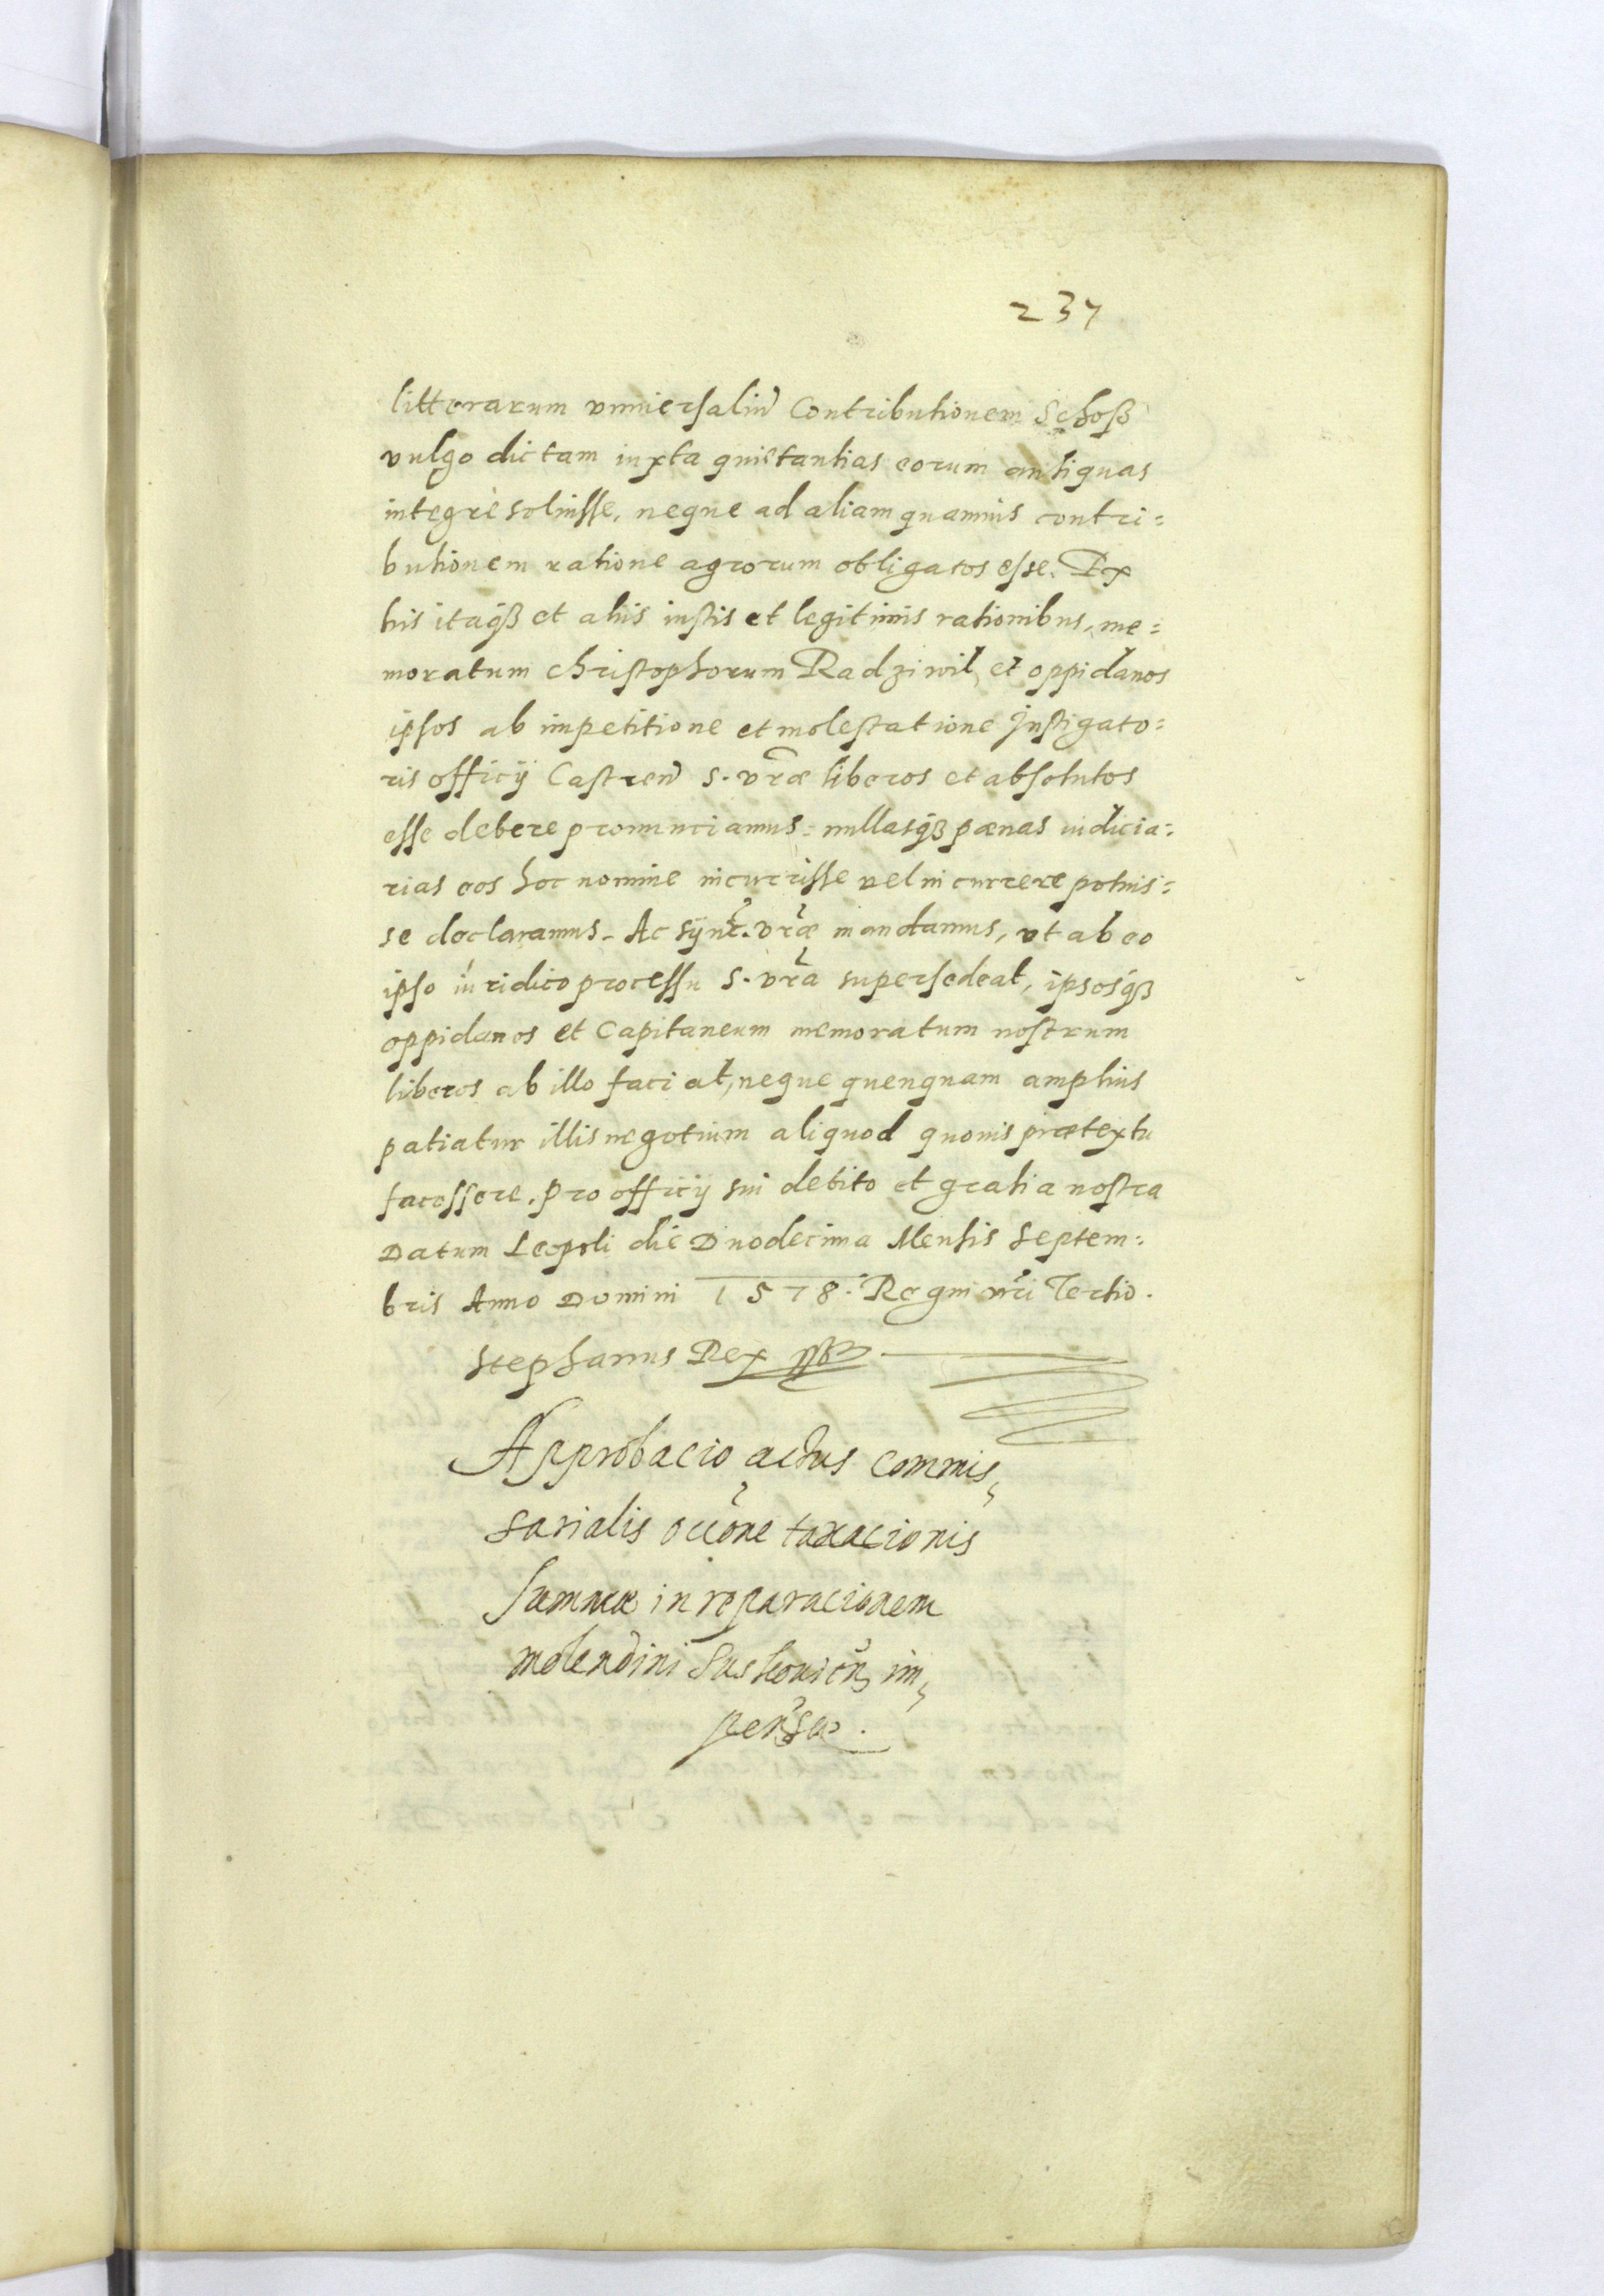 237
litterarum vniuersaliu̅ Contributionem Schoß
vulgo dictam iuxta quietantias eorum antiquas
integre soluisse, neque ad aliam quamuis contri=
butionem ratione agrorum obligatos esse. Ex
his itaqȝ et alijs iustis et legitimis rationibus, me=
moratum Christophorum Radziwil, et oppidanos
ipsos ab impetitione et molestatione Instigato=
ris officij Castren̅ S. vr̅æ liberos et absolutos
esse debere pronunciamus: nullasqȝ pænas iudicia=
rias eos hoc nomine incurrisse vel incurrere potuis=
se declaramus. Ac Synt̅. vr̅æ mandamus, vt ab eo
ipso iuridico processu S. vr̅a supersedeat, ipsosqȝ
oppidanos et Capitaneum memoratum nostrum
liberos ab illo faciat, neque quenquam amplius
patiatur illis negotium aliquod quouis prætextu
facessere. Pro officij sui debito et gratia nostra
Datum Leopoli die Duodecima Mensis Septem=
bris Anno Domini 1578. Regni nr̅i Tertio.
Stephanus Rex
Approbacio actus commis
sarialis occo̅ne taxacionis
summæ in reparacionem
molendini im
pensæ.